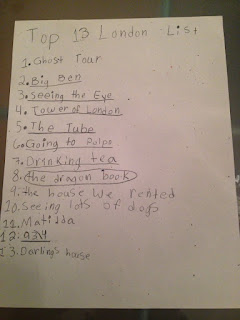 Top 13 London List
1. Ghost Tour
2. Big Ben
3. Seeing the Eye
4. Tower of London
5. The Tube
6. Going to Polpo
7. Drinking tea
8. the dragon book
9. the house we rented
10. Seeing lots of dogs
11. Matilda
12.
13. Darling's house